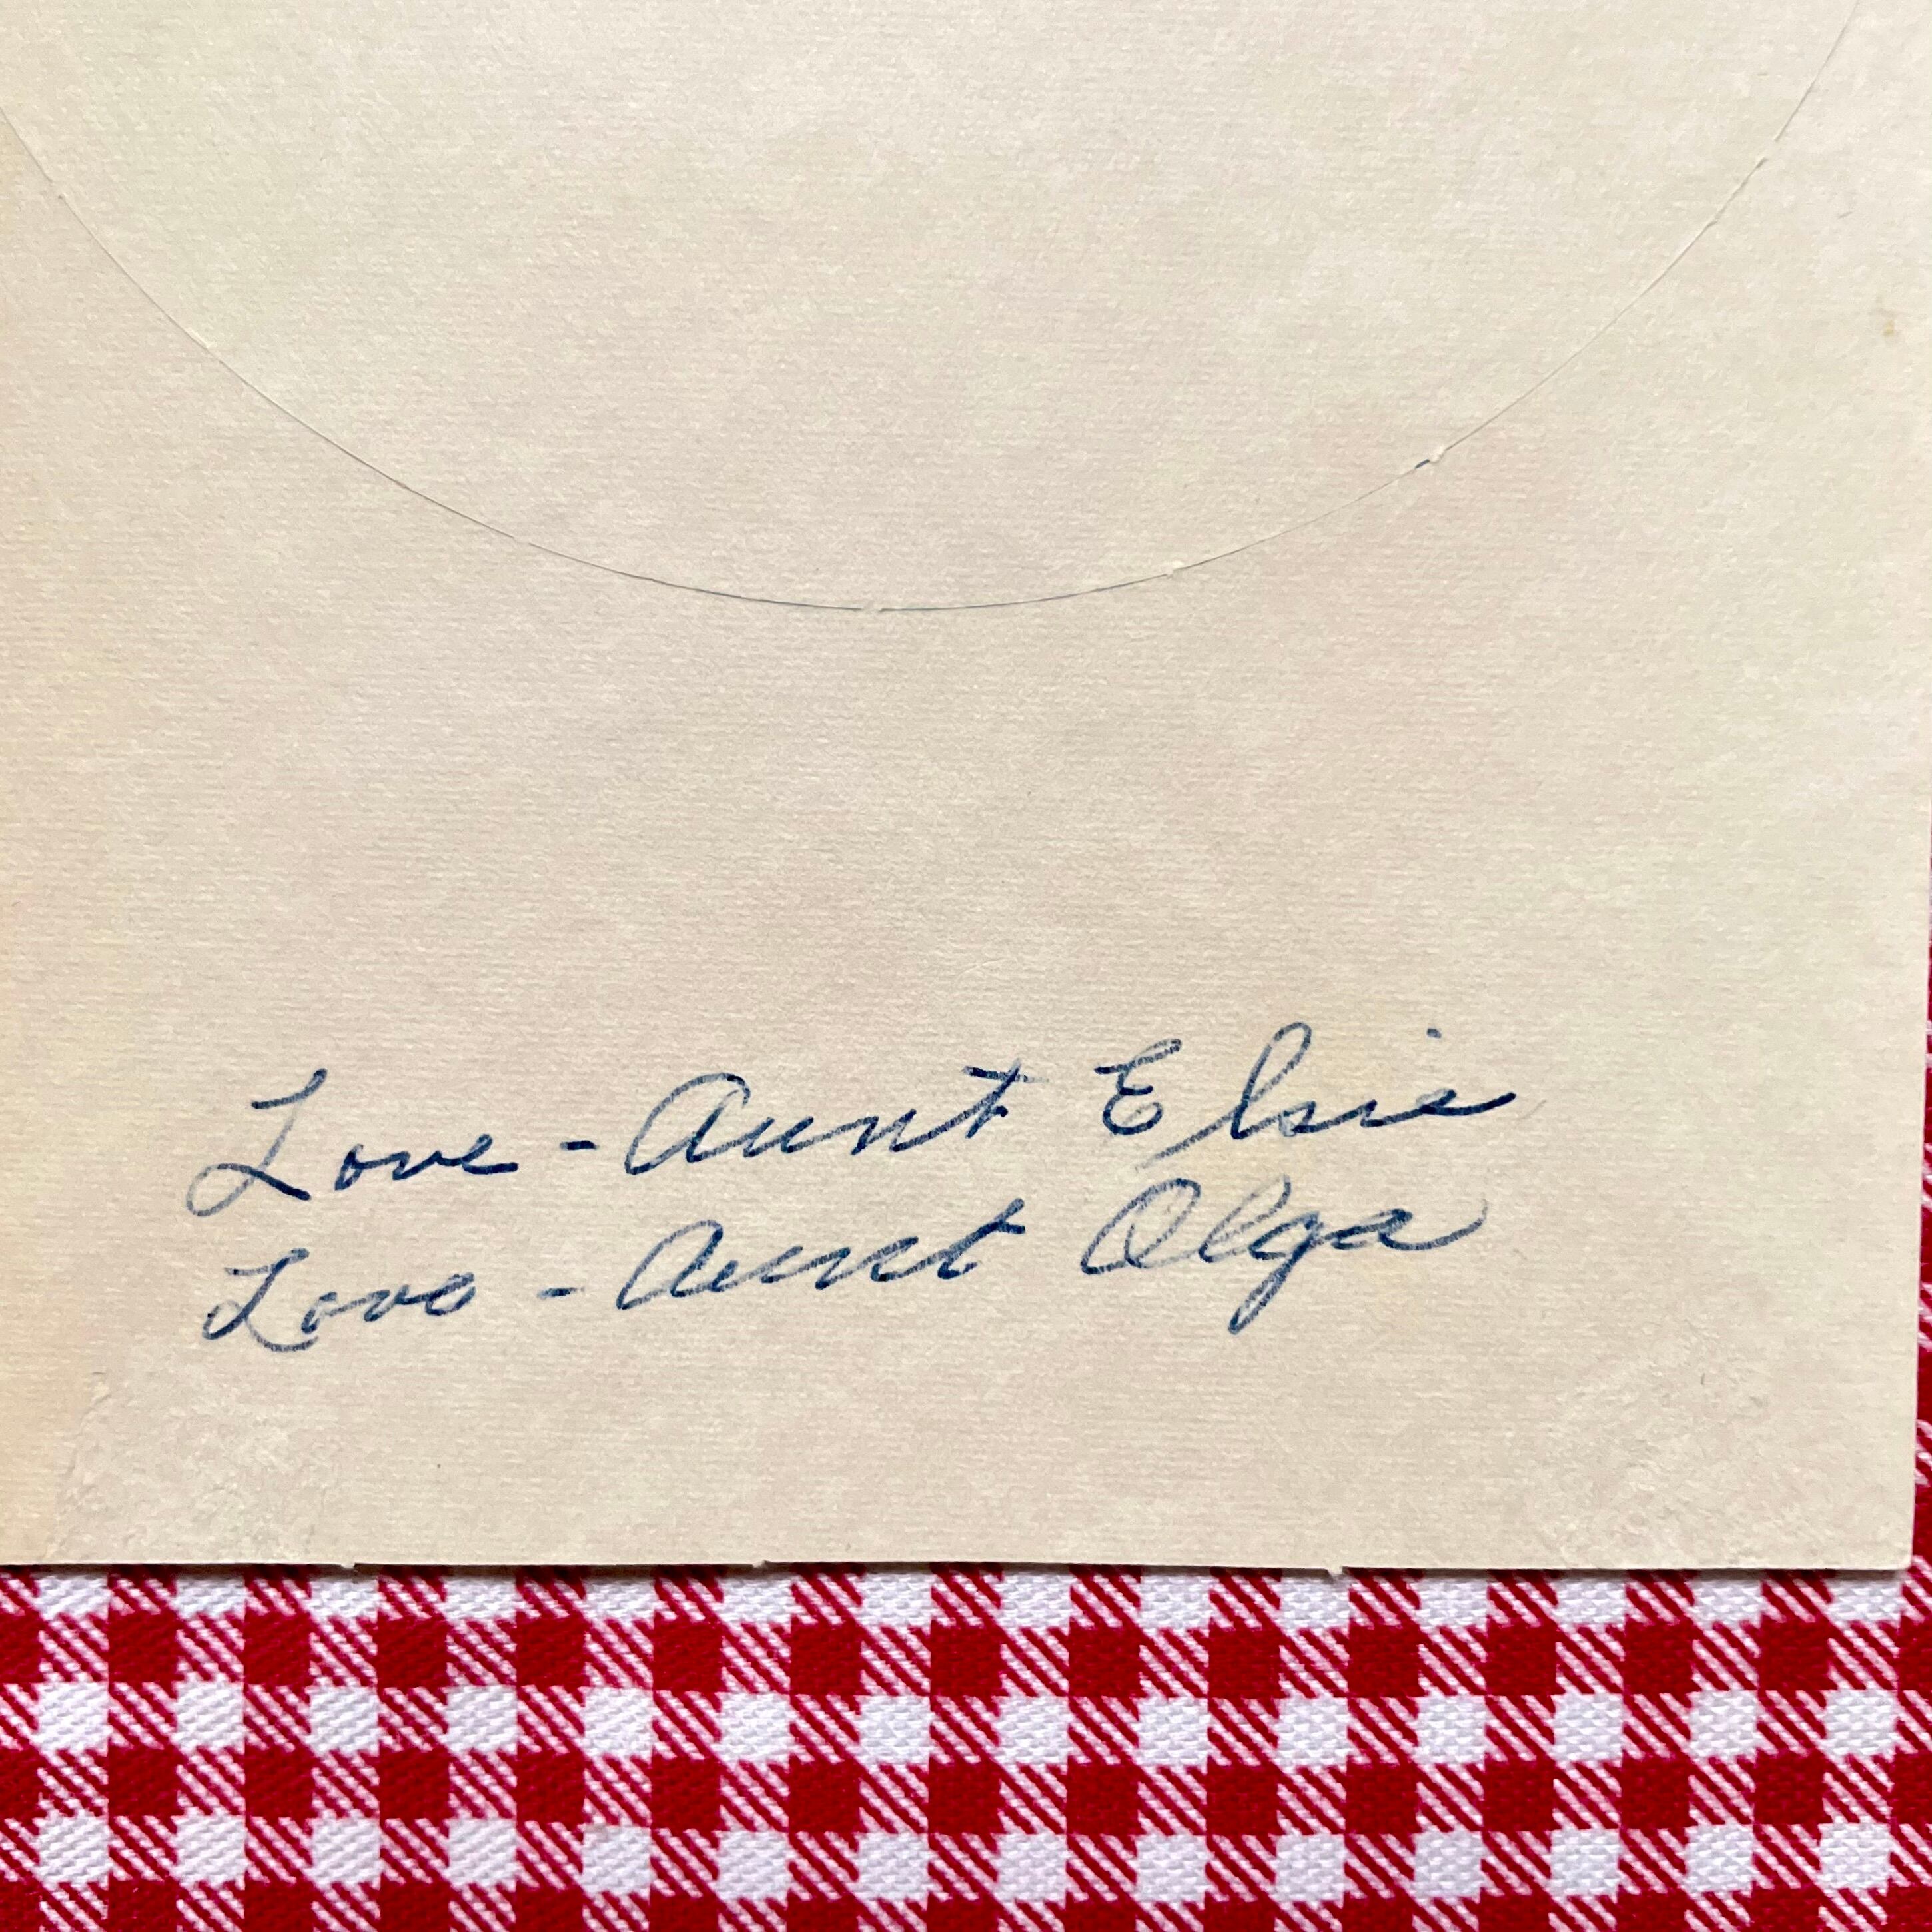 Love - Aunt Elsie
Love - Aunt Olga